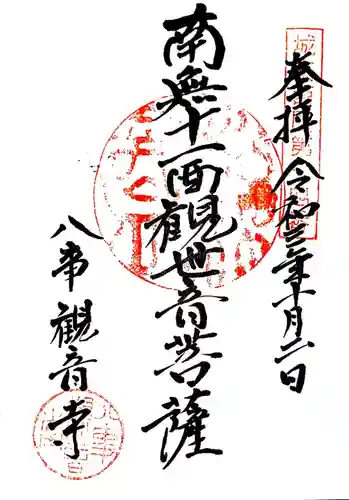 奉拝 令和三年十月二日
南無十一面観世音菩薩
八事 観音寺